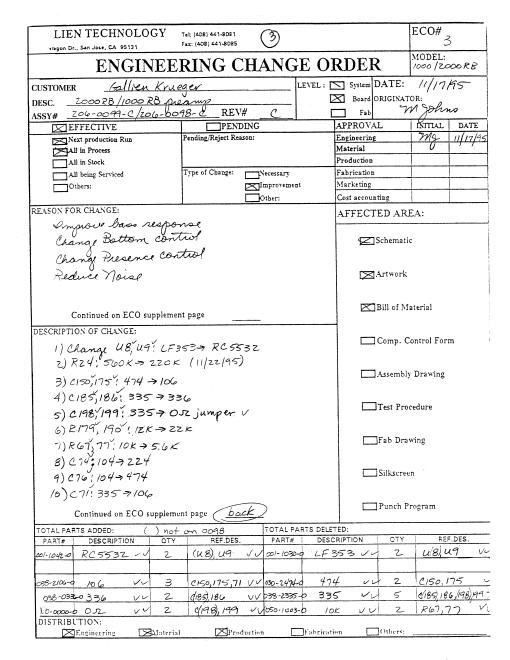 LIEN TECHNOLOGY Tel: (408) 441-8081 ③ ECO#
Dr., San Jose, CA 95131 Fax: (408) 441-8085 3
ENGINEERING CHANGE ORDER MODEL:
1000/2000RB
CUSTOMER Gallien Krueger LEVEL: System DATE: 11/17/95
DESC. 2000RB/1000RB preamp Board ORIGINATOR:
ASSY# 206-0099-C/206-0098-C REV# C Fab M Johns
EFFECTIVE PENDING APPROVAL INITIAL DATE
Next production Run Pending/Reject Reason: Engineering MJ 11/17/95
All in Process Material
All in Stock Production
All being Serviced Type of Change: Necessary Fabrication
Others: Improvement Marketing
Other: Cost accounting
REASON FOR CHANGE: AFFECTED AREA:
Improve bass response
Change Bottom control
Change Presence control
Reduce Noise
Schematic
Artwork
Bill of Material
Continued on ECO supplement page
DESCRIPTION OF CHANGE:
1) Change U8, U9: LF353→ RC5532
2) R24: 560K→ 220K (11/22/95)
3) C150,175: 474 → 106
4) C185,186: 335 → 336
5) C198,199: 335→ 0Ω jumper
6) R179, 190: 12K → 22K
7) R67,77: 10K → 5.6K
8) C74: 104→ 224
9) C76: 104→ 474
10) C71: 335→106
Comp. Control Form
Assembly Drawing
Test Procedure
Fab Drawing
Silkscreen
Punch Program
Continued on ECO supplement page back
TOTAL PARTS ADDED: ( ) not on 0098 TOTAL PARTS DELETED:
PART# DESCRIPTION QTY REF.DES. PART# DESCRIPTION QTY REF.DES.
RC5532 2 (U8), U9 LF353 2 U8, U9
106 3 C150,175,71 474 2 C150,175
336 2 C185,186 335 5 C185,186,198,199
0Ω 2 C198,199 10K 2 R67,77
DISTRIBUTION:
Engineering Material Production Fabrication Others: